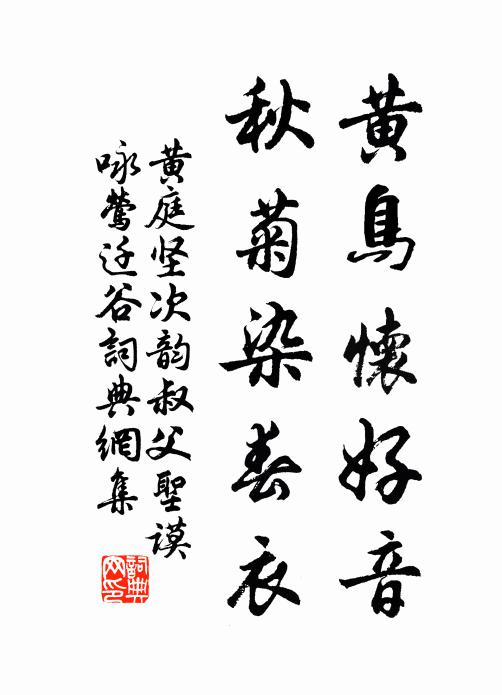 黄鳥懷好音
秋菊染春衣
黄庭坚次韵叔父聖謨
咏鶯迁谷詞典網集
詞典网印